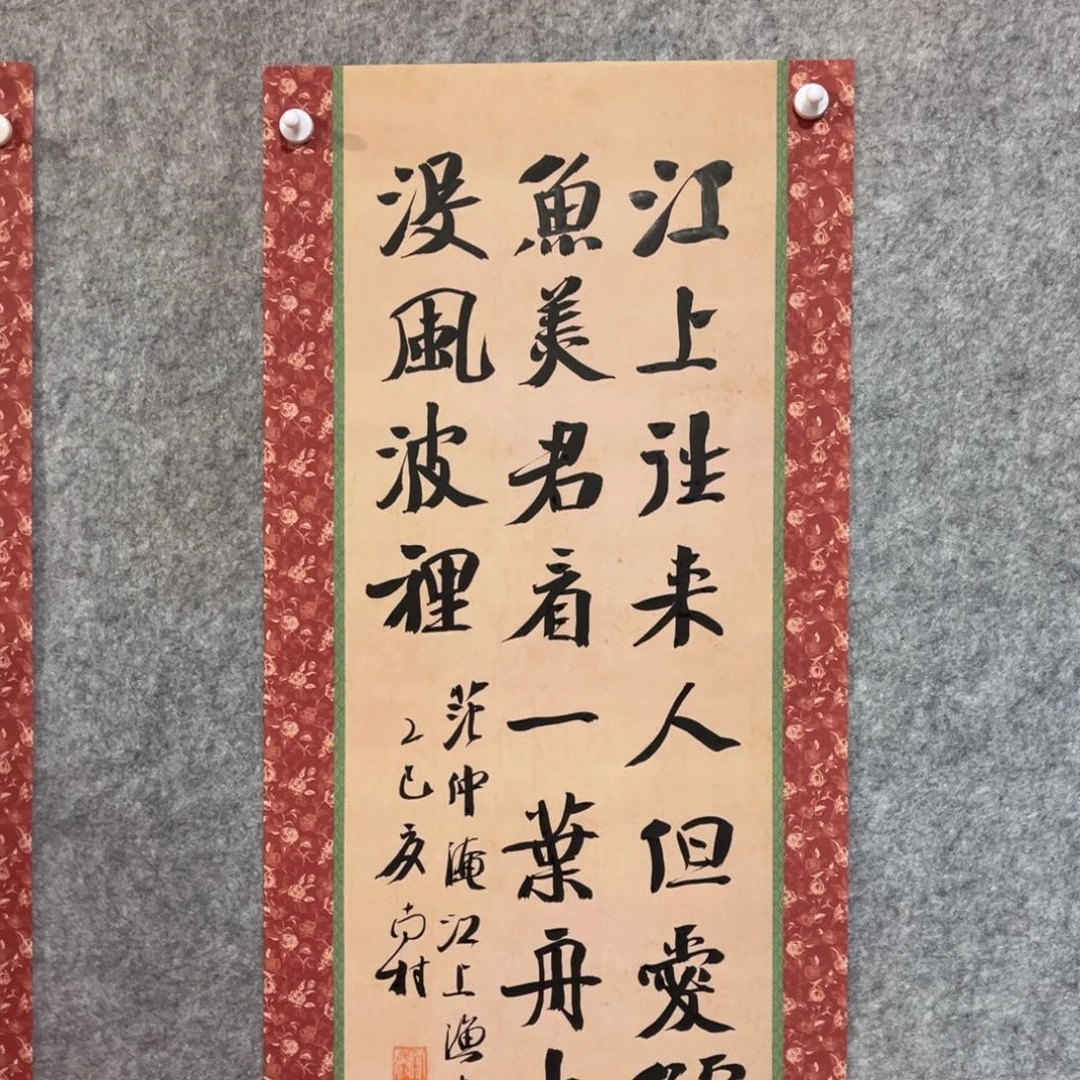 江上往来人但愛
魚美君看一葉舟
没風波裡
范仲淹江上漁
乙巳夏
村